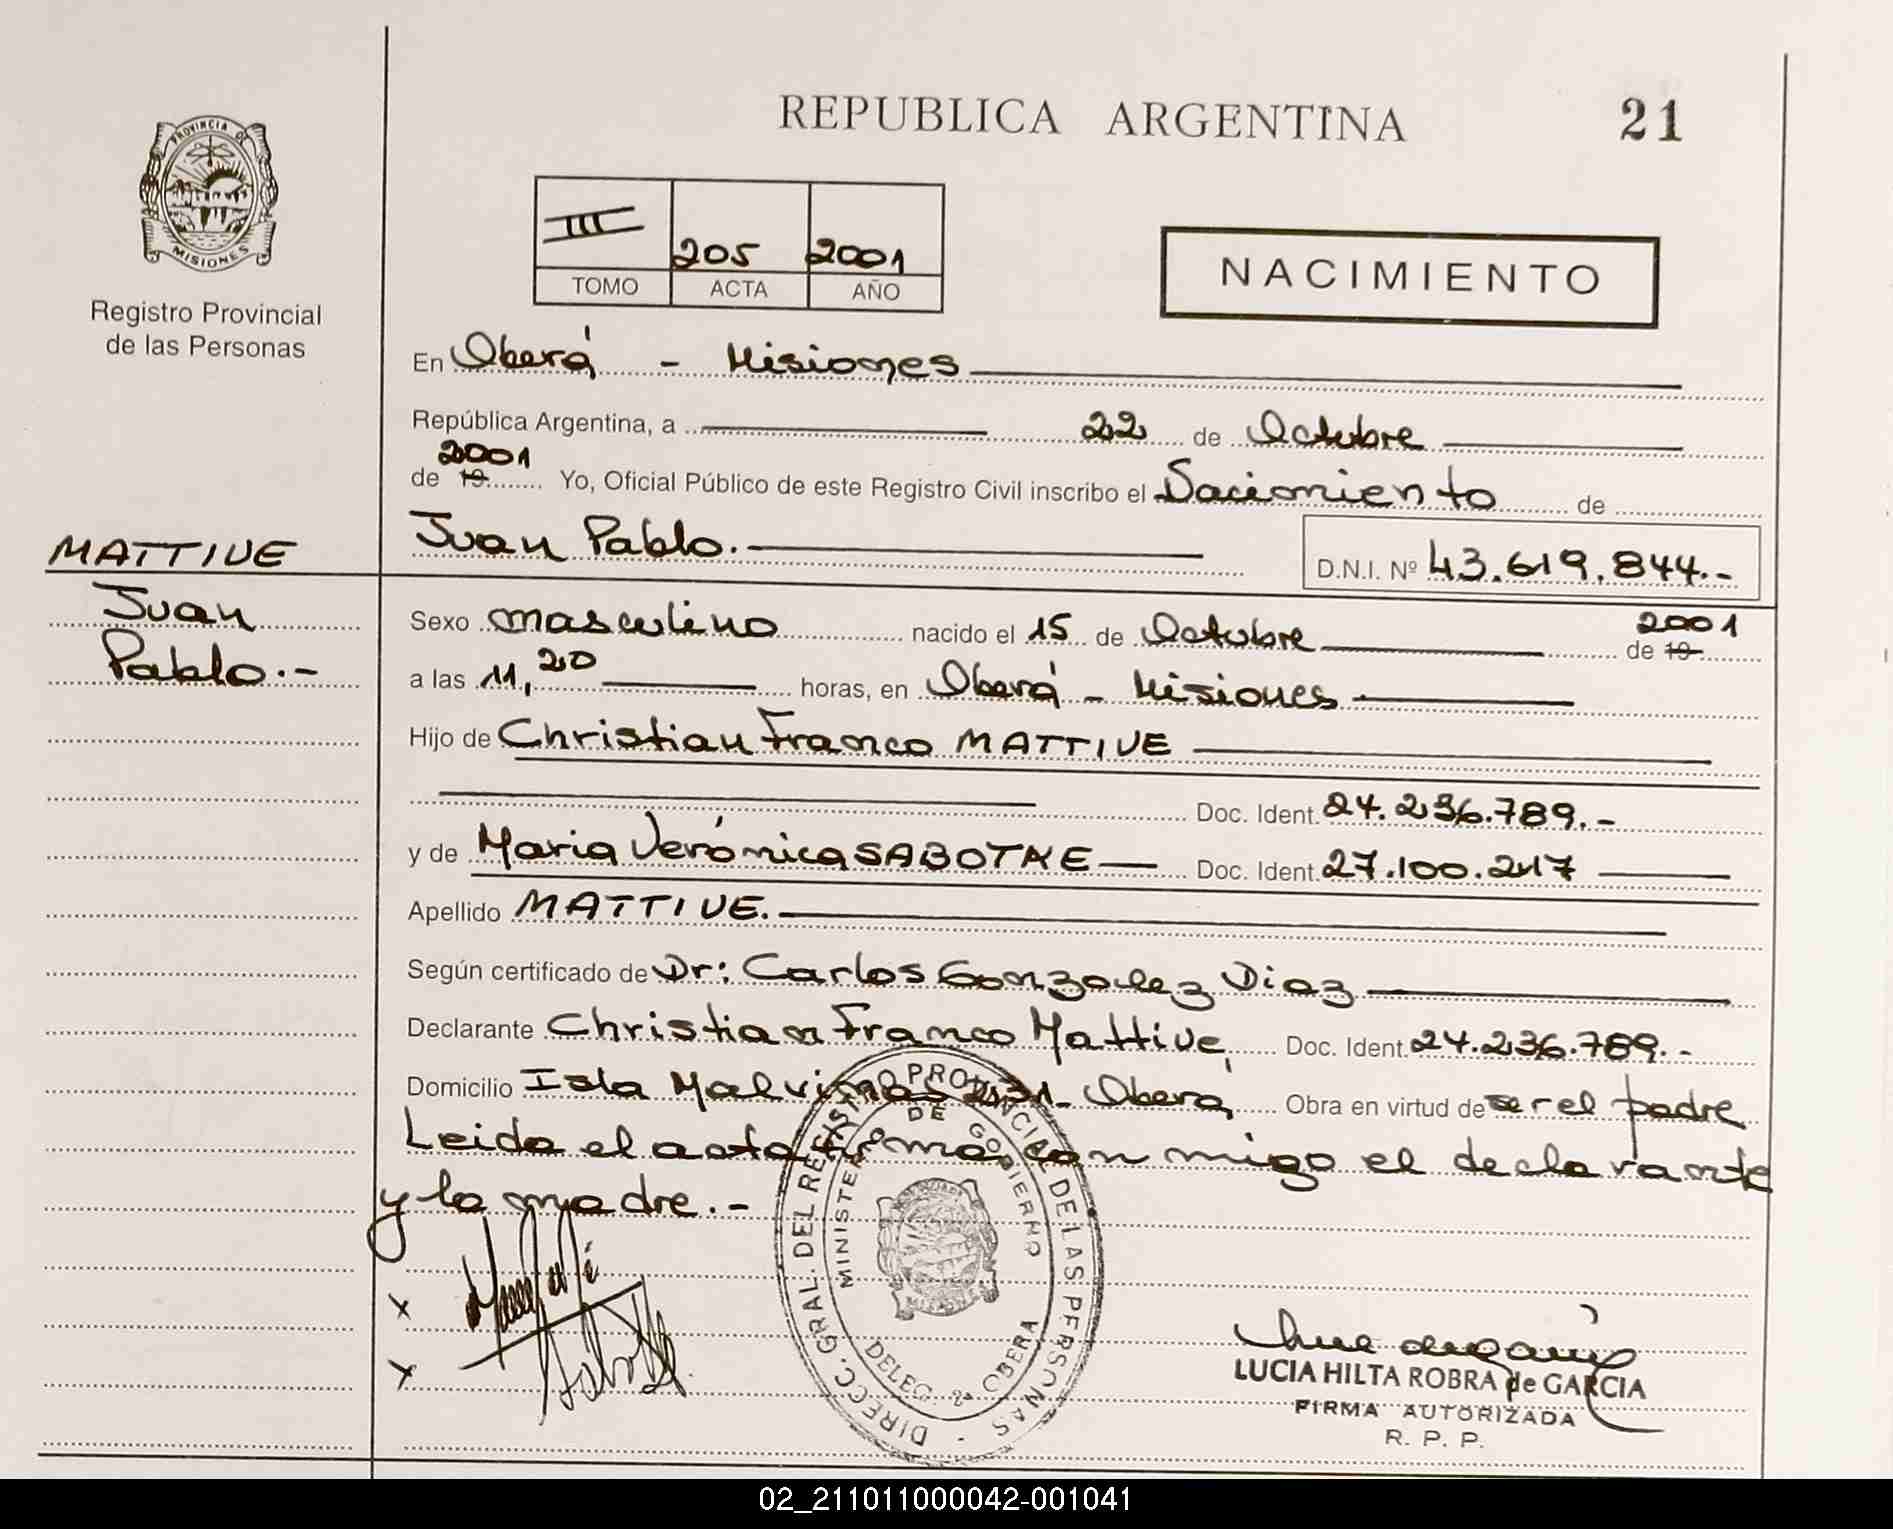 REPUBLICA ARGENTINA
21
PROVINCIA DE
MISIONES
Registro Provincial
de las Personas
III 205 2001
TOMO ACTA AÑO
NACIMIENTO
En Oberá - Misiones
República Argentina, a 22 de Octubre
2001
de 19 Yo, Oficial Público de este Registro Civil inscribo el Nacimiento de
Juan Pablo.
D.N.I. Nº 43.619.844.-
MATTIVE
Juan
Pablo.-
Sexo masculino nacido el 15 de Octubre de 19 2001
a las 11,20 horas, en Oberá - Misiones
Hijo de Christian Franco MATTIVE
Doc. Ident. 24.236.789.-
y de Maria Verónica SABOTKE Doc. Ident. 27.100.217
Apellido MATTIVE.
Según certificado de Dr: Carlos Gonzalez Diaz
Declarante Christian Franco Mattive, Doc. Ident. 24.236.789.-
Domicilio Isla Malvinas 231- Oberá Obra en virtud de ser el padre
Leida el acta firma con migo el declarante
y la madre.-
DIRECC. GRAL. DEL REGISTRO PROVINCIAL DE LAS PERSONAS
MINISTERIO DE GOBIERNO
DELEG. 2ª OBERA
x
x
LUCIA HILTA ROBRA de GARCIA
FIRMA AUTORIZADA
R. P. P.
02_211011000042-001041